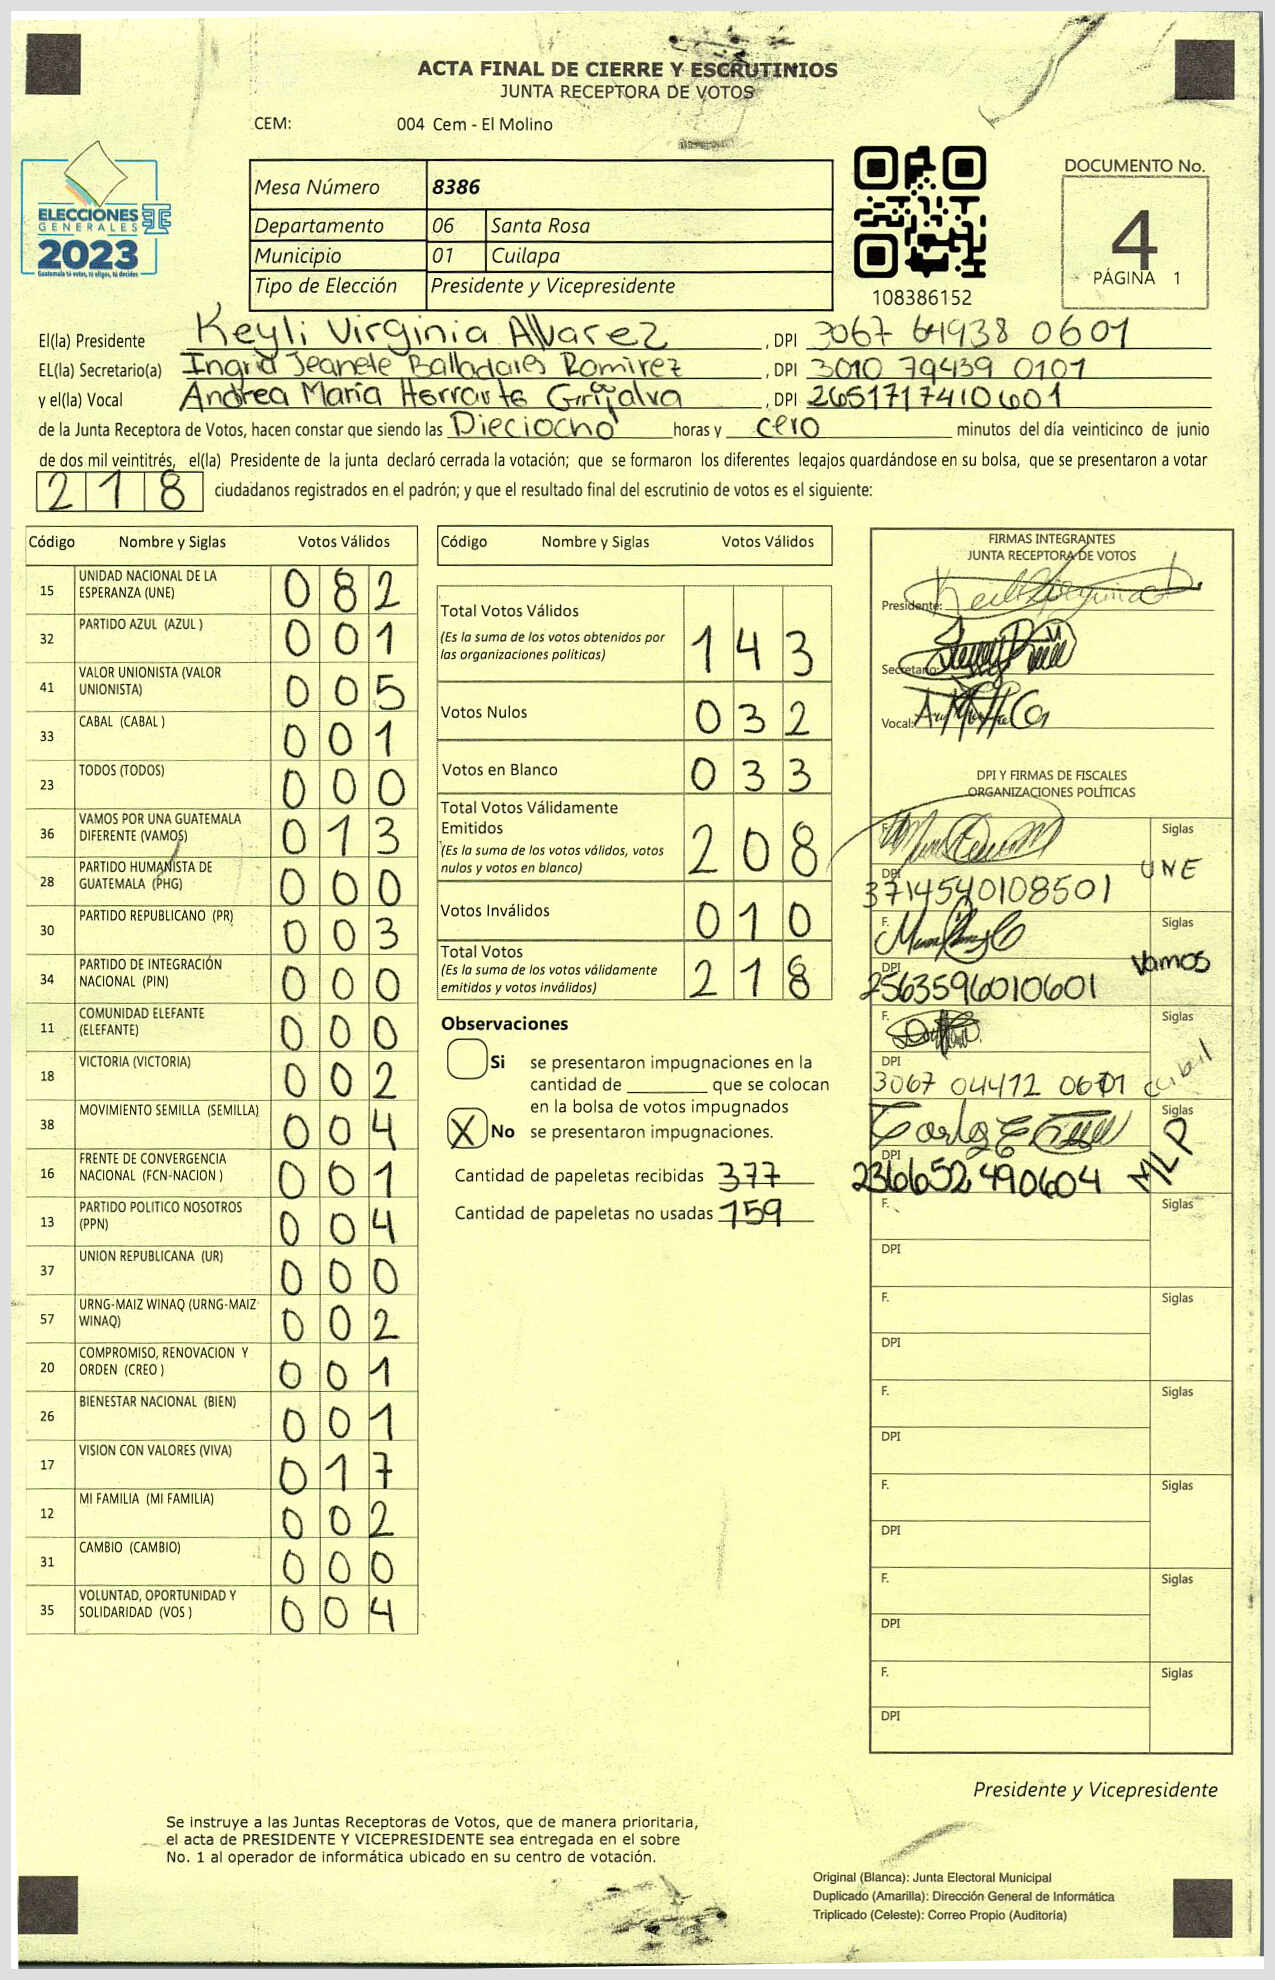 ACTA FINAL DE CIERRE Y ESCRUTINIOS
JUNTA RECEPTORA DE VOTOS
CEM: 004 Cem - El Molino
ELECCIONES
GENERALES
2023
Guatemala tú votas, tú eliges, tú decides
Mesa Número 8386
Departamento 06 Santa Rosa
Municipio 01 Cuilapa
Tipo de Elección Presidente y Vicepresidente
108386152
DOCUMENTO No.
4
PÁGINA 1
El(la) Presidente Keyli Virginia Alvarez, DPI 3067 64938 0601
EL(la) Secretario(a) Ingrid Jeanete Balladares Ramirez, DPI 3010 79439 0101
y el(la) Vocal Andrea María Herrarte Grijalva, DPI 2651717410601
de la Junta Receptora de Votos, hacen constar que siendo las Dieciocho horas y cero minutos del día veinticinco de junio
de dos mil veintitrés, el(la) Presidente de la junta declaró cerrada la votación; que se formaron los diferentes legajos guardándose en su bolsa, que se presentaron a votar
218 ciudadanos registrados en el padrón; y que el resultado final del escrutinio de votos es el siguiente:
Código Nombre y Siglas Votos Válidos
15 UNIDAD NACIONAL DE LA ESPERANZA (UNE) 082
32 PARTIDO AZUL (AZUL ) 001
41 VALOR UNIONISTA (VALOR UNIONISTA) 005
33 CABAL (CABAL ) 001
23 TODOS (TODOS) 000
36 VAMOS POR UNA GUATEMALA DIFERENTE (VAMOS) 013
28 PARTIDO HUMANISTA DE GUATEMALA (PHG) 000
30 PARTIDO REPUBLICANO (PR) 003
34 PARTIDO DE INTEGRACIÓN NACIONAL (PIN) 000
11 COMUNIDAD ELEFANTE (ELEFANTE) 000
18 VICTORIA (VICTORIA) 002
38 MOVIMIENTO SEMILLA (SEMILLA) 004
16 FRENTE DE CONVERGENCIA NACIONAL (FCN-NACION ) 001
13 PARTIDO POLITICO NOSOTROS (PPN) 004
37 UNION REPUBLICANA (UR) 000
57 URNG-MAIZ WINAQ (URNG-MAIZ WINAQ) 002
20 COMPROMISO, RENOVACION Y ORDEN (CREO ) 001
26 BIENESTAR NACIONAL (BIEN) 001
17 VISION CON VALORES (VIVA) 017
12 MI FAMILIA (MI FAMILIA) 002
31 CAMBIO (CAMBIO) 000
35 VOLUNTAD, OPORTUNIDAD Y SOLIDARIDAD (VOS ) 004
Código Nombre y Siglas Votos Válidos
Total Votos Válidos 143
(Es la suma de los votos obtenidos por
las organizaciones políticas)
Votos Nulos 032
Votos en Blanco 033
Total Votos Válidamente
Emitidos 208
(Es la suma de los votos válidos, votos
nulos y votos en blanco)
Votos Inválidos 010
Total Votos 218
(Es la suma de los votos válidamente
emitidos y votos inválidos)
Observaciones
Si se presentaron impugnaciones en la
cantidad de ________ que se colocan
en la bolsa de votos impugnados
X No se presentaron impugnaciones.
Cantidad de papeletas recibidas 377
Cantidad de papeletas no usadas 159
FIRMAS INTEGRANTES
JUNTA RECEPTORA DE VOTOS
Presidente:
Secretario:
Vocal:
DPI Y FIRMAS DE FISCALES
ORGANIZACIONES POLÍTICAS
F. Siglas
DPI 3714540108501 UNE
F. Siglas
DPI 2563596010601 Vamos
F. Siglas
DPI 3067 04412 0601 Cabal
Siglas
DPI 236652490604 MLP
F. Siglas
DPI
F. Siglas
DPI
F. Siglas
DPI
F. Siglas
DPI
F. Siglas
DPI
F. Siglas
DPI
Presidente y Vicepresidente
Se instruye a las Juntas Receptoras de Votos, que de manera prioritaria,
el acta de PRESIDENTE Y VICEPRESIDENTE sea entregada en el sobre
No. 1 al operador de informática ubicado en su centro de votación.
Original (Blanca): Junta Electoral Municipal
Duplicado (Amarilla): Dirección General de Informática
Triplicado (Celeste): Correo Propio (Auditoría)